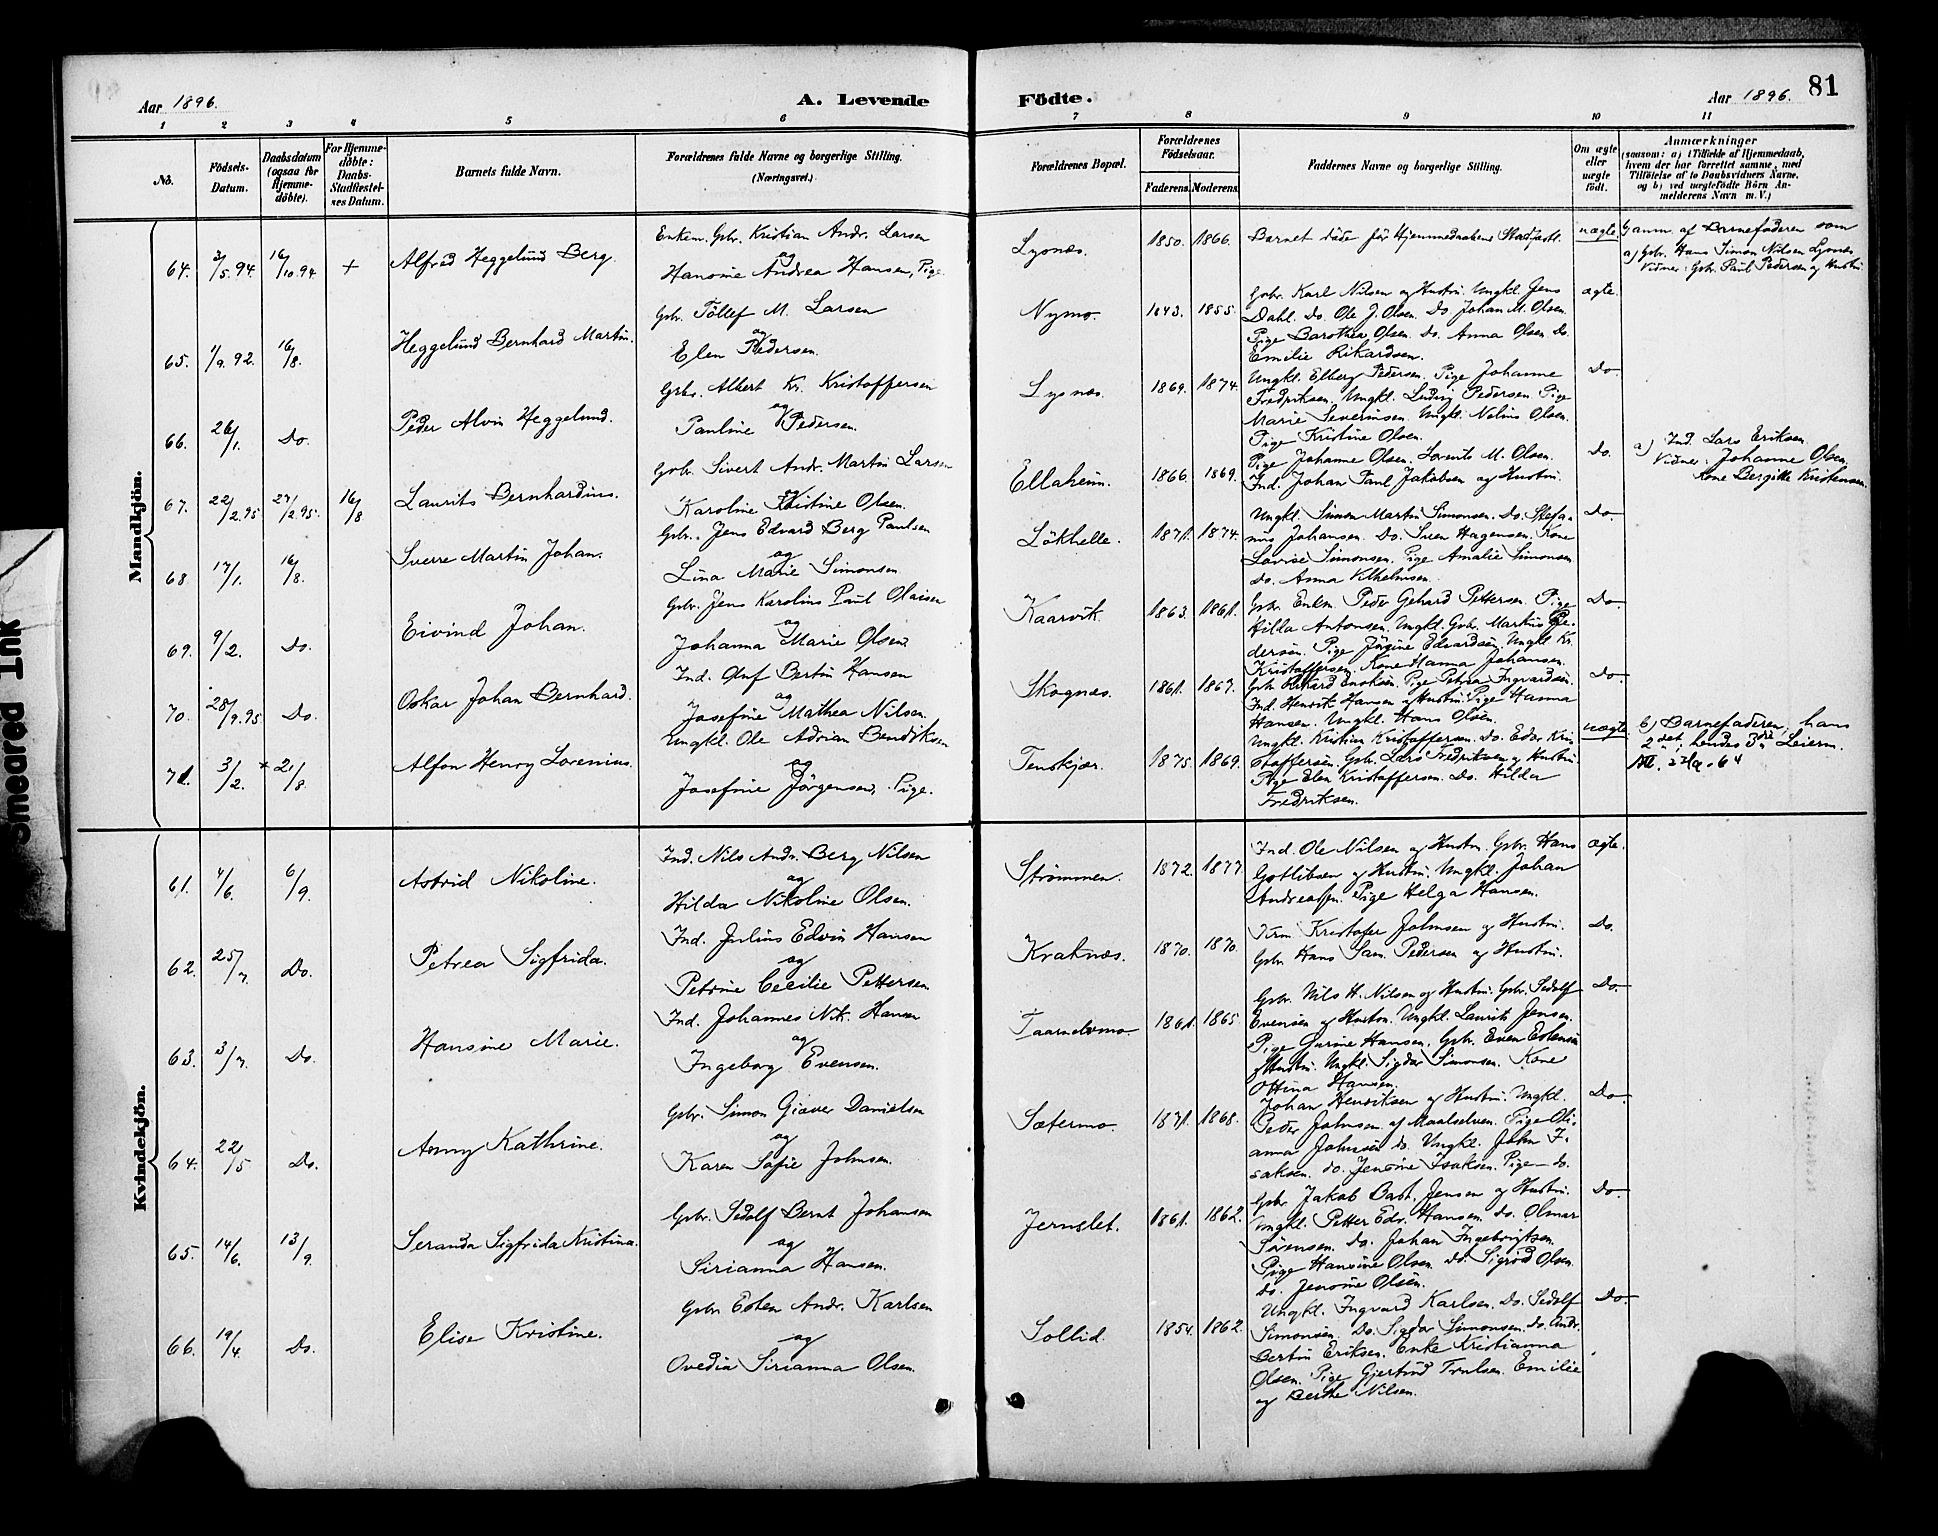 81
Aar 1896.
A. Levende
Födte.
Aar 1896.
1 2 3 4 5 6 7 8 9 10 11
No.
Födsels-
Datum.
Daabsdatum
(ogsaa for
Hjemme-
döbte).
For Hjemme-
döbte:
Daabs-
Stadfæstel-
ses Datum.
Barnets fulde Navn.
Forældrenes fulde Navne og borgerlige Stilling.
(Næringsvei.)
Forældrenes Bopæl.
Forældrenes
Födselsaar.
Faderens. Moderens.
Faddernes Navne og borgerlige Stilling.
Om ægte
eller
uægte
födt.
Anmærkninger
(saasom: a) i Tilfælde af Hjemmedaab,
hvem der har forrettet samme, med
Tilföielse af to Daabsvidners Navne.
og b) ved uægtefödte Börn An-
melderens Navn m. V.)
Mandkjön.
64. 3/5.94 16/10.94 + Alfred Heggelund Berg.
Enkem. Gbr. Kristian Andr. Larsen
og
Hansine Andrea Hansen, Pige
Lysnæs. 1850. 1866.
Barnet döde før Hjemmedaabens Stadfæst.
uægte.
af Barnefaderen som
a) Gbr. Hans Simon Nilsen Lysnes
Vidner: Gbr. Paul Pedersen og Hustru
65. 1/9.92 16/8. Heggelund Bernhard Martin.
Gbr. Tollef M. Larsen
og
Elen Pedersen.
Nymo. 1843. 1855.
Gbr. Karl Nilsen og Hustru. Ungkl. Jens
Dahl. Do. Ole J. Olsen. Do. Johan M. Olsen.
Pige Barothea Olsen. Do. Anna Olsen Do.
Emilie Rikardsen.
ægte.
66. 26/1. Do. Peder Alvin Heggelund.
Gbr. Albert Kr. Kristoffersen
og
Pauline Pedersen.
Lysnæs. 1869. 1874.
Ungkl. Elberg Pedersen. Pige Johanne
Fredriksen. Ungkl. Ludvig Pedersen. Pige
Marie Severinsen. Ungkl. Nelius Olsen.
Pige Kristine Olsen.
Do.
67. 22/2.95 27/2.95. 16/8 Laurits Bernhardinus.
Gbr. Sivert Andr. Martin Larsen
Karoline Kristine Olsen.
Ellaheim. 1866. 1869.
Pige Johanne Olsen. Lorents M. Olsen.
Ind. Johan Paul Jakobsen og Hustru.
Do.
a) Ind. Lars Eriksen.
Vidner: Johanne Olsen.
Kone Bergitte Kristensen.
68 17/1. 16/8. Sverre Martin Johan.
Gbr. Jens Edvard Berg Paulsen
og
Lina Marie Simonsen
Lökhelle. 1871. 1874.
Ungkl. Simon Martin Simonsen. Do. Stefa-
nus Johansen. Do. Sven Hagensen. Kone
Lovise Simonsen. Pige Amalie Simonsen
Do. Anna Vilhelmsen.
Do.
69. 9/2. Do. Eivind Johan.
Gbr. Jens Karolius Paul Olaisen
og
Johanna Marie Olsen.
Kaarvik. 1863. 1861.
Gbr. Enkm. Peder Gehard Pettersen. Pige
Hilda Antonsen. Ungkl. Gbr. Markus Pe-
dersen. Pige Jörgine Edvardsen. Ungkl. Kr.
Kristoffersen. Kone Hanna Johansen.
Do.
70. 28/9.95 Do. Oskar Johan Bernhard.
Ind. Oluf Bertin Hansen
og
Josefine Mathea Nilsen.
Skognæs. 1861. 1867.
Gbr. Rikard Enoksen. Pige Petra Ingvardsen.
Ind. Henrik Hansen og Hustru. Pige Hanna
Hansen. Ungkl. Hans Olsen.
Do.
71. 3/2. * 2/8. Alfon Henry Lorenius.
Ungkl. Ole Adrian Bendiksen
og
Josefine Jörgensen, Pige.
Tenskjær. 1875. 1869.
Ungkl. Kristian Kristoffersen. Do. Edv. Kri-
stoffersen. Gbr. Lars Fredriksen og Hustru.
Pige Elen Kristoffersen. Do. Hilda
Fredriksen.
uægte
b) Barnefaderen, hans
2det, hendes 3die Leierm.
Kvindekjön.
61. 4/6. 6/9. Astrid Nikoline.
Ind. Nils Andr. Berg Nilsen
og
Hilda Nikoline Olsen.
Strømmen. 1872. 1877.
Ind. Ole Nilsen og Hustru. Gbr. Hans
Gotlibsen og Hustru. Ungkl. Johan
Andreassen. Pige Helga Hansen.
ægte.
62. 25/7. Do. Petrea Sigfrida.
Ind. Julius Edvin Hansen
og
Petrine Cecilie Pettersen
Kraknæs. 1870. 1870.
Krm Kristofer Johnsen og Hustru.
Gbr. Hans Sam. Pedersen og Hustru.
Do.
63. 3/7. Do. Hansine Marie.
Ind. Johannes Nik. Hansen
og
Ingeborg Evensen.
Taarnelvmo 1861. 1865
Gbr. Nils H. Nilsen og Hustru. Gbr. Sedolf
Evensen og Hustru. Ungkl. Laurits Jensen.
Pige Gurine Hansen. Gbr. Even Estensen
og Hustru. Ungkl. Sigvar Simonsen. Kone
Ottina Hansen.
Do.
64. 22/5 Do. Anny Kathrine.
Gbr. Simon Giæver Danielsen
og
Karen Sofie Johnsen.
Sætermo. 1871. 1868.
Johan Henriksen og Hustru. Ungkl.
Peder Johnsen af Maalselven. Pige Oli-
anna Johnsen do. Ungkl. John I-
saksen. do. Jensine Isaksen. Pige do.
Do.
65. 14/6. 13/9. Seranda Sigfrida Kristina.
Gbr. Sedolf Bernt Johansen
og
Sirianna Hansen.
Jernslet. 1861. 1862.
Gbr. Jakob Bast. Jensen og Hustru.
Ungkl. Petter Edv. Hansen. do. Olmar
Sörensen. Do. Johan Ingebrigtsen.
Pige Hansine Olsen. do. Sigrid Olsen.
Do. Jensine Olsen.
Do.
66. 19/4. Do. Elise Kristine.
Gbr Esten Andr. Karlsen
og
Ovedia Sirianna Olsen.
Sollid. 1854. 1862.
Ungkl. Ingvard Karlsen. Do. Sedolf
Simonsen. Do. Sigvar Simonsen. do. Andr.
Bertin Eriksen. Enke Kristianna
Olsen. Pige Gjertrud Trulsen. Emilie
og Berthe Nilsen.
Do.
Smeared Ink